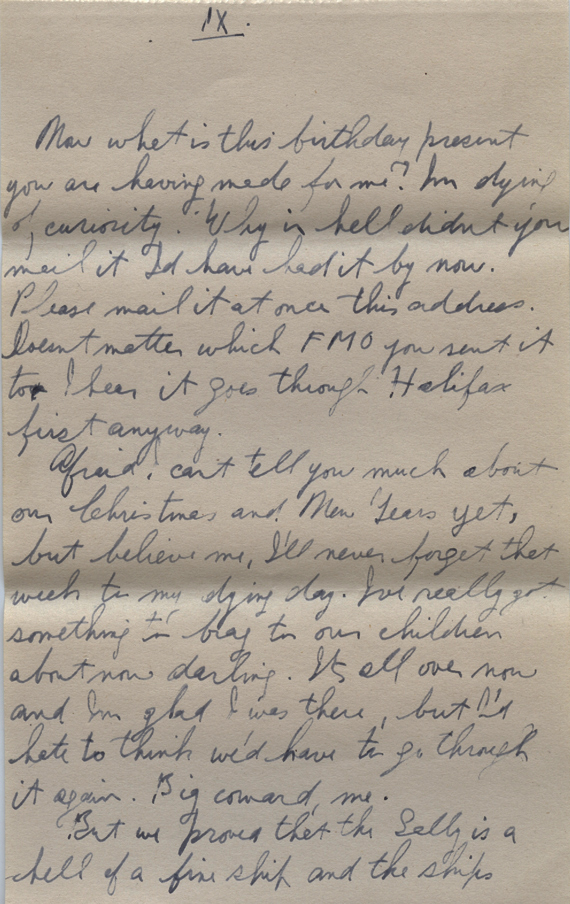 IX.
Now what is this birthday present
you are having made for me? Im dying
of curiosity. Why in hell didnt you
mail it I'd have had it by now.
Please mail it at once this address.
Doesnt matter which FMO you sent it
to I hear it goes through Halifax
first anyway.
Afraid I cant tell you much about
our Christmas and New Years yet,
but believe me, I'll never forget that
week to my dying day. I've really got
something to brag to our children
about now darling. Its all over now
and Im glad I was there, but I'd
hate to think we'd have to go through
it again. Big coward, me.
But we proved that the Sally is a
hell of a fine ship and the ships